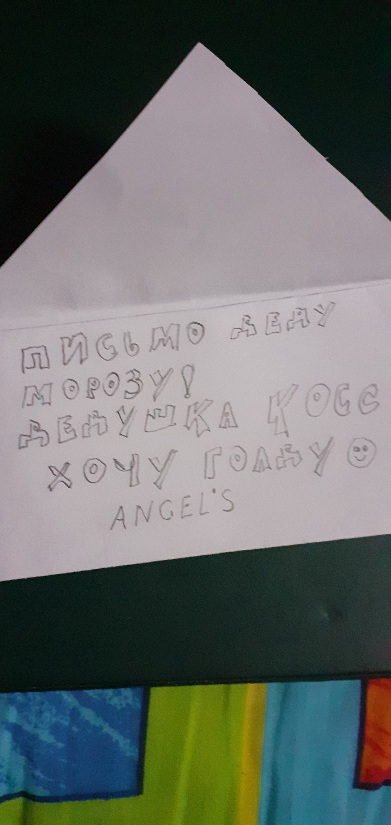 ПИСЬМО ДЕДУ
МОРОЗУ!
ДЕДУШКА КОСС
ХОЧУ ГОЛДУ
ANGEL'S